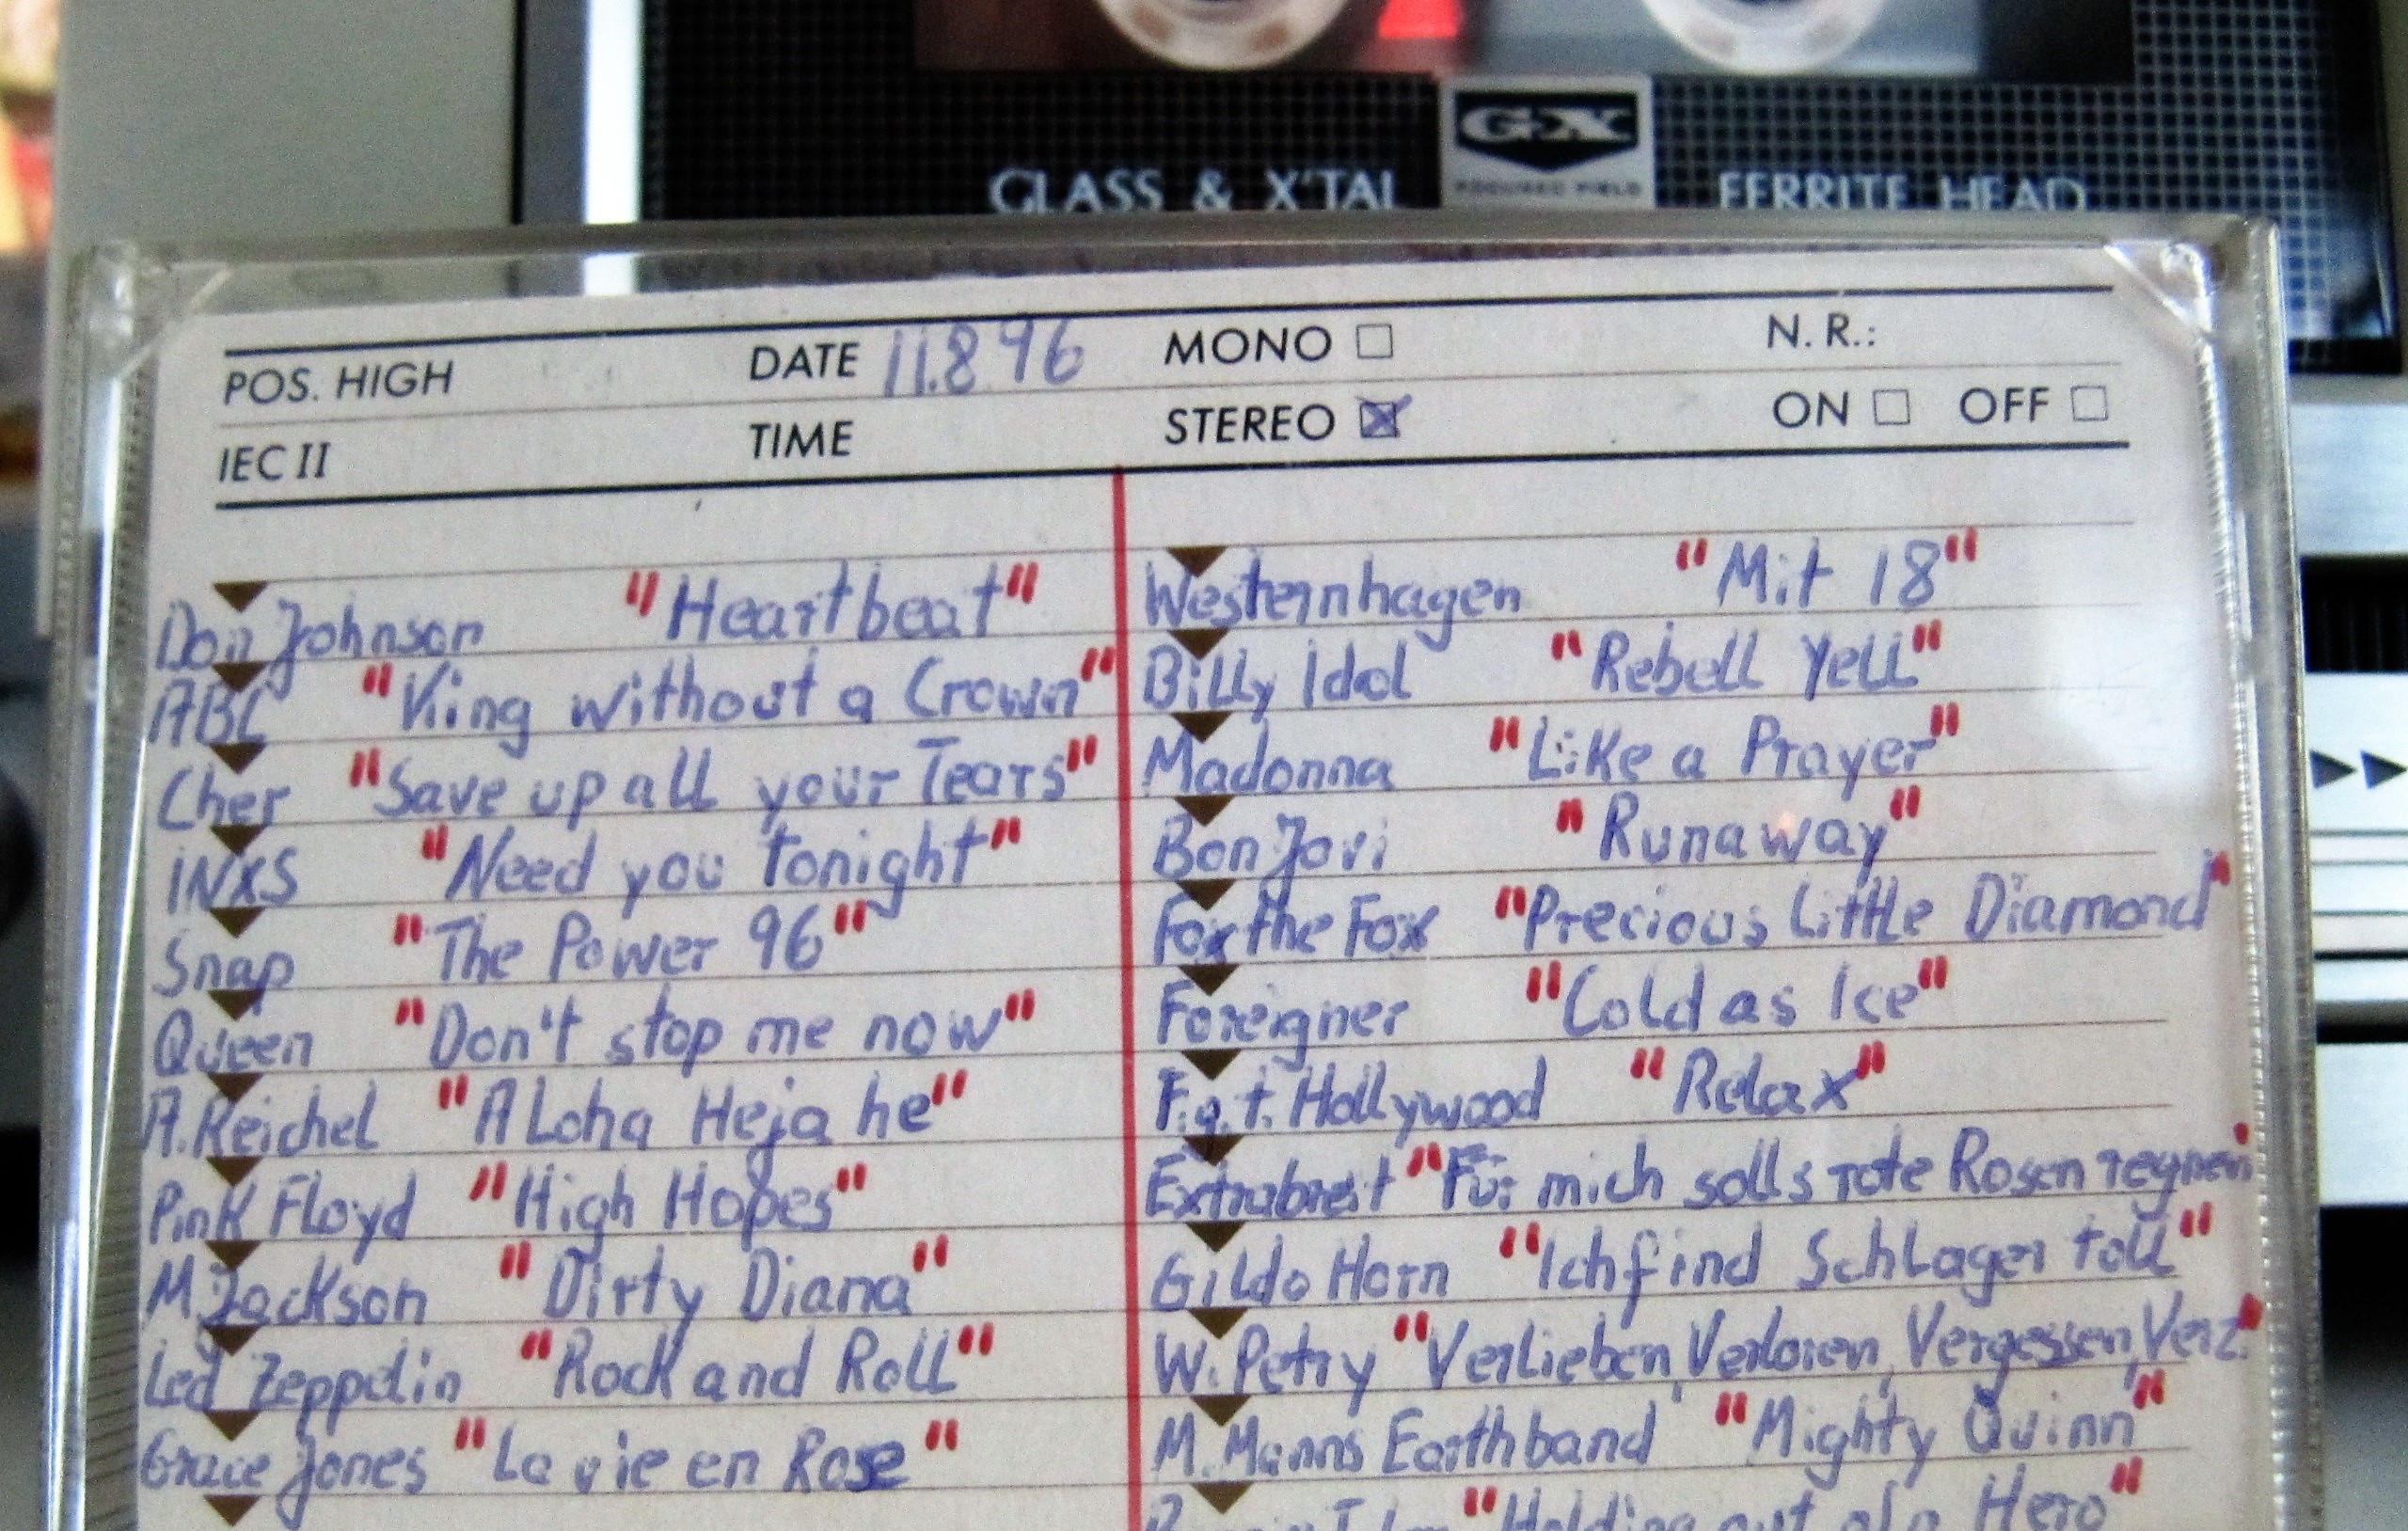 GX
FOCUSED FIELD
GLASS & X'TAL
FERRITE HEAD
POS. HIGH DATE 11.8.96 MONO N.R.:
IEC II TIME STEREO ON OFF
Don Johnson "Heartbeat"
ABC "King without a Crown"
Cher "Save up all your Tears"
INXS "Need you tonight"
Snap "The Power 96"
Queen "Don't stop me now"
A. Reichel "Aloha Heja he"
Pink Floyd "High Hopes"
M. Jackson "Dirty Diana"
Led Zeppelin "Rock and Roll"
Grace Jones "La vie en Rose"
Westernhagen "Mit 18"
Billy Idol "Rebell Yell"
Madonna "Like a Prayer"
Bon Jovi "Runaway"
Fox the Fox "Precious Little Diamond"
Foreigner "Cold as Ice"
F.g.t. Hollywood "Relax"
Extrabreit "Für mich solls rote Rosen regnen"
Gildo Horn "Ich find Schlager toll"
W. Petry "Verlieben, Verloren, Vergessen, Verz."
M. Manns Earthband "Mighty Quinn"
"Holding out of a Hero"